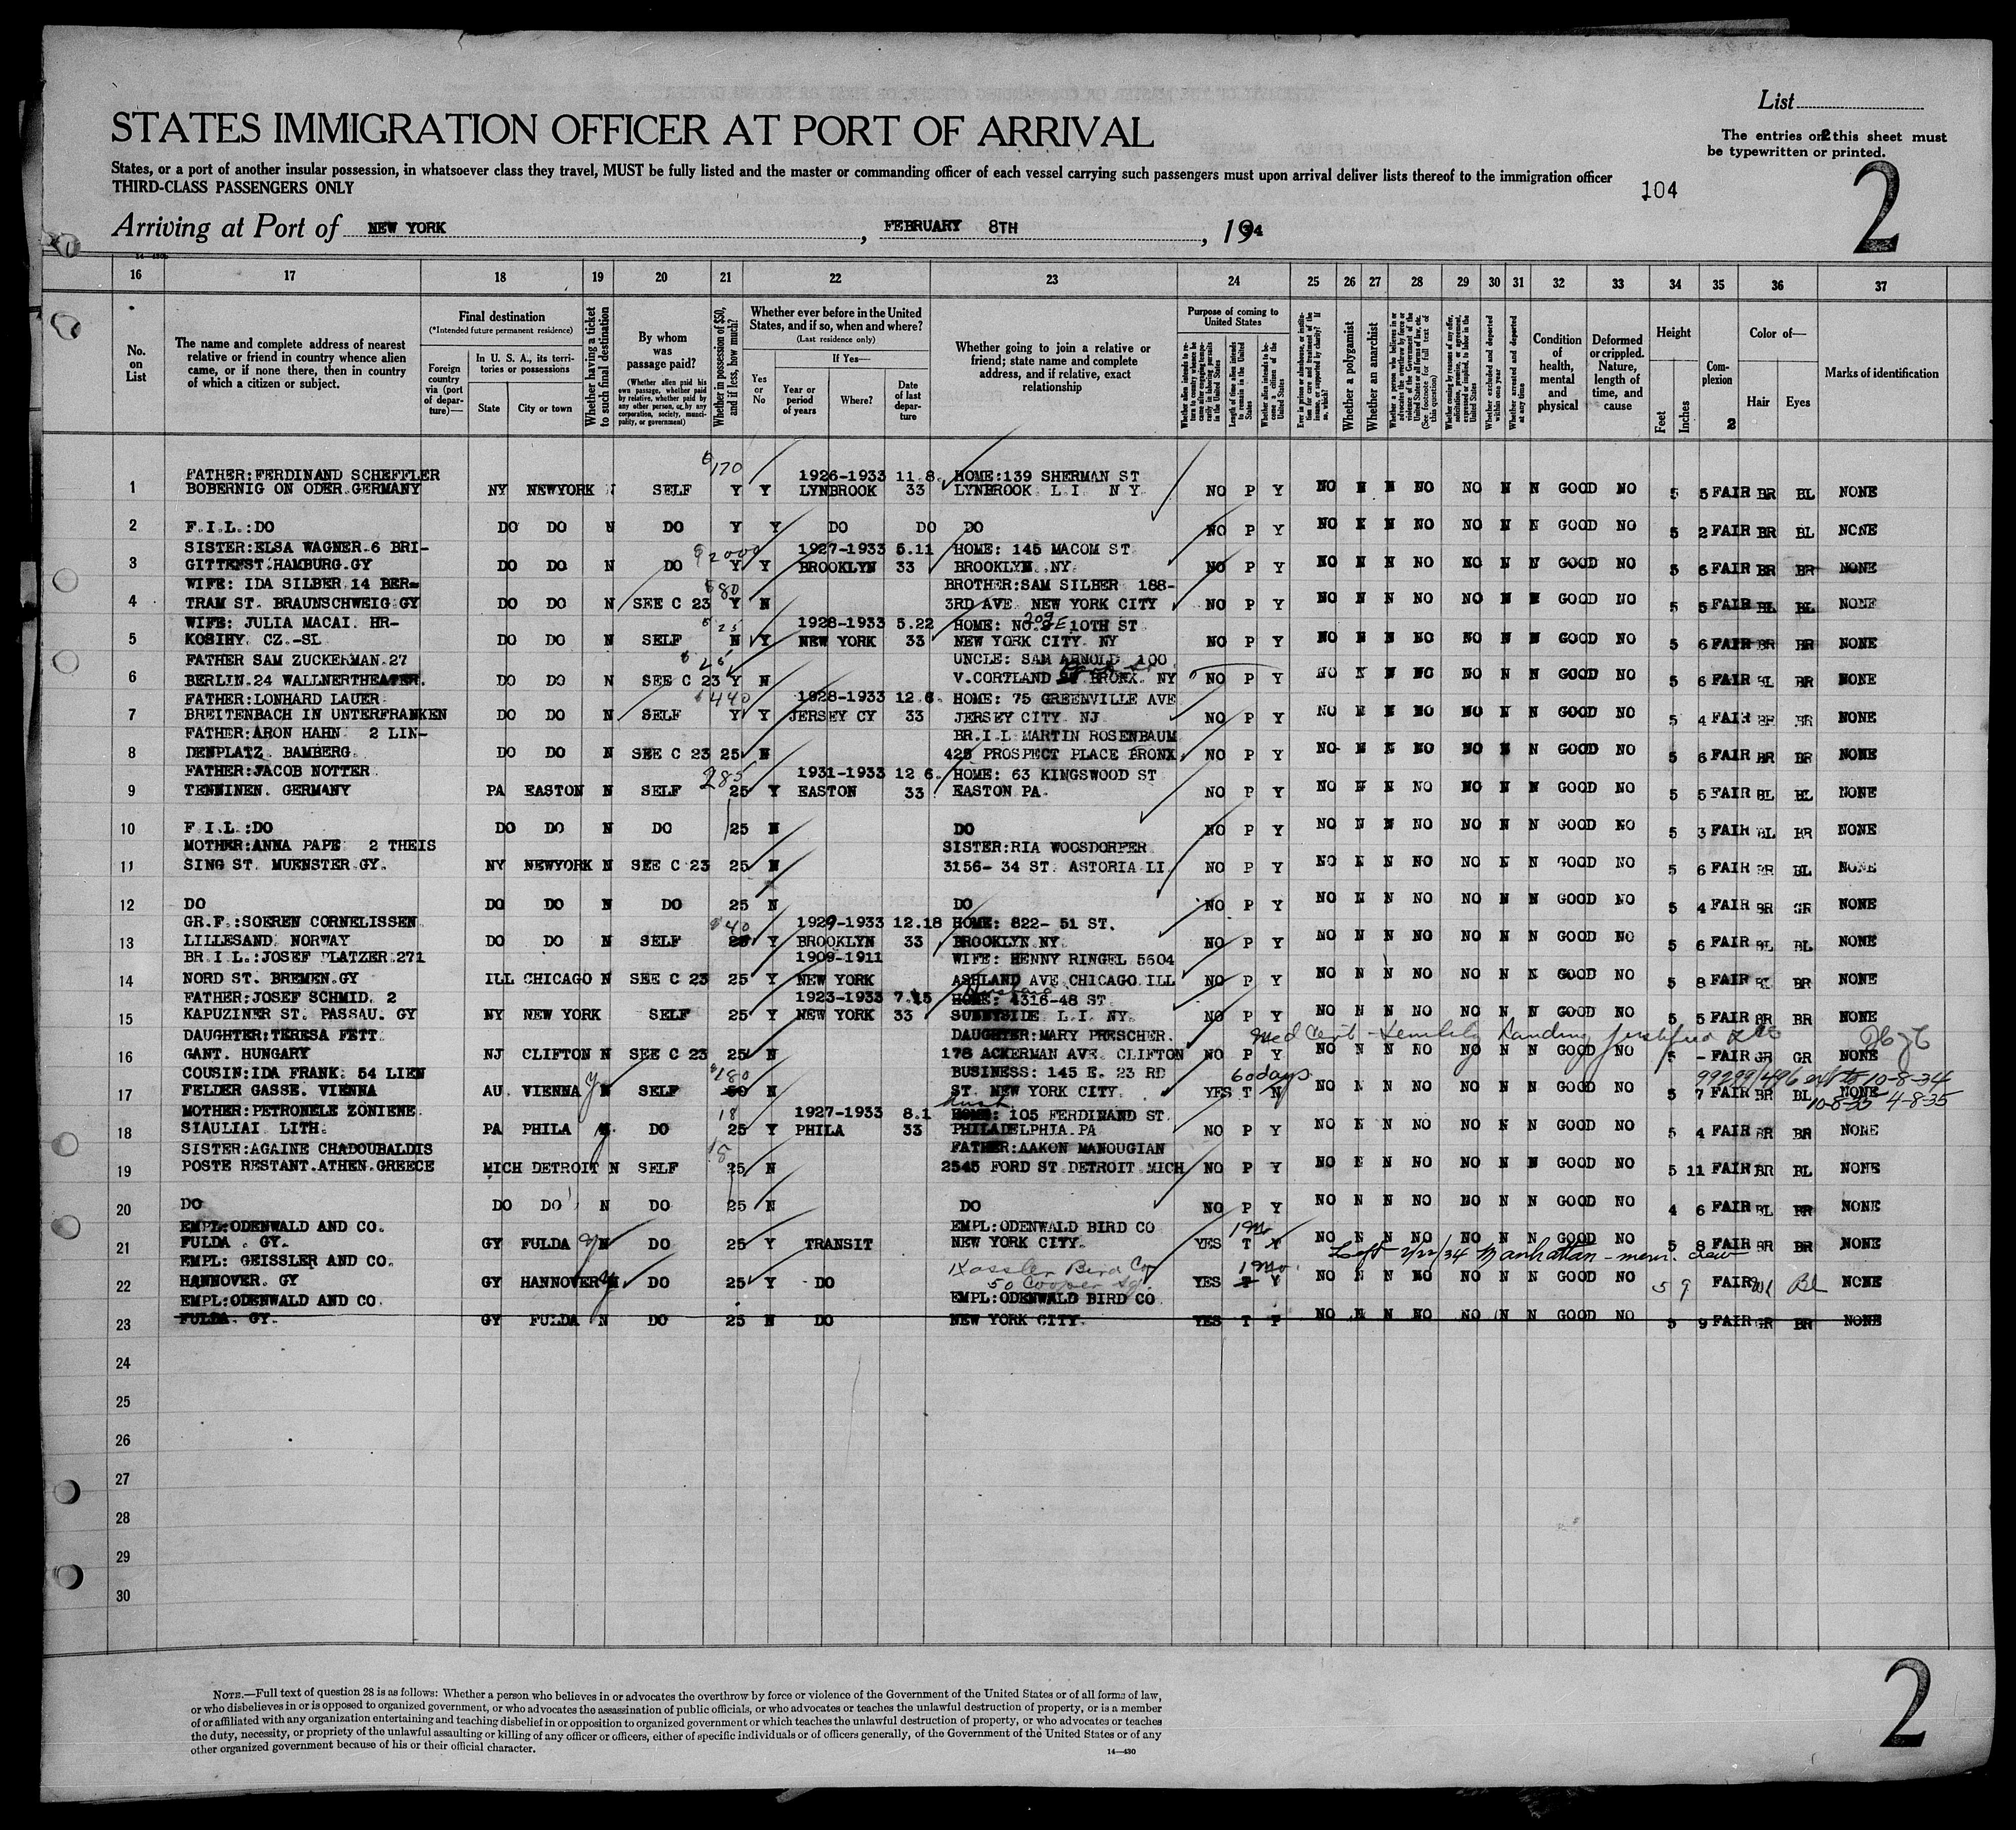 List
The entries on this sheet must
be typewritten or printed.
2
STATES IMMIGRATION OFFICER AT PORT OF ARRIVAL
States, or a port of another insular possession, in whatsoever class they travel, MUST be fully listed and the master or commanding officer of each vessel carrying such passengers must upon arrival deliver lists thereof to the immigration officer
THIRD-CLASS PASSENGERS ONLY
104
2
Arriving at Port of NEW YORK, FEBRUARY 8TH, 1934
16 17 18 19 20 21 22 23 24 25 26 27 28 29 30 31 32 33 34 35 36 37
No. on List
The name and complete address of nearest relative or friend in country whence alien came, or if none there, then in country of which a citizen or subject.
Final destination
(*Intended future permanent residence)
Foreign country via (port of departure)—
In U. S. A., its territories or possessions
State City or town
Whether having a ticket to such final destination
By whom was passage paid?
(Whether alien paid his own passage, whether paid by relative, whether paid by any other person, or by any corporation, society, municipality, or government)
Whether in possession of $50, and if less, how much?
Whether ever before in the United States, and if so, when and where?
(Last residence only)
Yes or No
If Yes—
Year or period of years
Where?
Date of last departure
Whether going to join a relative or friend; state name and complete address, and if relative, exact relationship
Purpose of coming to United States
Length of time alien intends to remain in the United States
Whether alien intends to become a citizen of the United States
Whether a polygamist
Whether an anarchist
Whether excluded and deported within one year
Whether arrested and deported at any time
Condition of health, mental and physical
Deformed or crippled. Nature, length of time, and cause
Height
Feet Inches
Complexion
2
Color of—
Hair Eyes
Marks of identification
FATHER:FERDINAND SCHEFFLER $170 1926-1933 11.8. HOME:139 SHERMAN ST
1 BOBERNIG ON ODER.GERMANY NY NEWYORK N SELF Y Y LYNBROOK 33 LYNBROOK L.I. N Y. NO P Y NO N N NO NO N N GOOD NO 5 5 FAIR BR BL NONE
2 F.I.L.:DO DO DO N DO Y Y DO DO DO NO P Y NO N N NO NO N N GOOD NO 5 2 FAIR BR BL NONE
SISTER:ELSA WAGNER.6 BRI- $2000 1927-1933 5.11 HOME: 145 MACOM ST
3 GITTENST.HAMBURG.GY DO DO N DO Y Y BROOKLYN 33 BROOKLYN. NY. NO P Y NO N N NO NO N N GOOD NO 5 6 FAIR BR BR NONE
WIFE: IDA SILBER 14 BER- $80 BROTHER:SAM SILBER 188-
4 TRAM ST. BRAUNSCHWEIG GY DO DO N SEE C 23 Y N 3RD AVE NEW YORK CITY NO P Y NO N N NO NO N N GOOD NO 5 5 FAIR BL BL NONE
WIFE: JULIA MACAI. HR- $25 1928-1933 5.22 HOME: NO. 209 E 10TH ST
5 KOSIHY. CZ.-SL DO DO N SELF N Y NEW YORK 33 NEW YORK CITY. NY NO P Y NO N N NO NO N N GOOD NO 5 6 FAIR BR BR NONE
FATHER SAM ZUCKERMAN.27 UNCLE: SAM ARNOLD 100
6 BERLIN.24 WALLNERTHEATER. DO DO N SEE C 23 Y N V.CORTLAND BRONX. NY NO P Y NO N N NO NO N N GOOD NO 5 6 FAIR BL BR NONE
FATHER:LONHARD LAUER $440 1928-1933 12.6. HOME: 75 GREENVILLE AVE
7 BREITENBACH IN UNTERFRANKEN DO DO N SELF Y Y JERSEY CY 33 JERSEY CITY. NJ NO P Y NO N N NO NO N N GOOD NO 5 4 FAIR BR BR NONE
FATHER:ARON HAHN 2 LIN- BR.I.L MARTIN ROSENBAUM
8 DENPLATZ. BAMBERG. DO DO N SEE C 23 25 N 425 PROSPECT PLACE BRONX. NO P Y NO N N NO NO N N GOOD NO 5 6 FAIR BR BR NONE
FATHER:JACOB NOTTER 285 1931-1933 12 6. HOME: 63 KINGSWOOD ST
9 TENNINEN. GERMANY PA EASTON N SELF 25 Y EASTON 33 EASTON PA. NO P Y NO N N NO NO N N GOOD NO 5 5 FAIR BL BL NONE
10 F.I.L.:DO DO DO N DO 25 N DO NO P Y NO N N NO NO N N GOOD NO 5 3 FAIR BL BR NONE
MOTHER:ANNA PAPE 2 THEIS SISTER:RIA WOOSDORFER
11 SING ST. MUENSTER GY. NY NEWYORK N SEE C 23 25 N 3156- 34 ST. ASTORIA LI. NO P Y NO N N NO NO N N GOOD NO 5 6 FAIR BR BL NONE
12 DO DO DO N DO 25 N DO NO P Y NO N N NO NO N N GOOD NO 5 4 FAIR BR GR NONE
GR.F.:SOEREN CORNELISSEN $40 1929-1933 12.18 HOME: 822- 51 ST.
13 LILLESAND. NORWAY DO DO N SELF 25 Y BROOKLYN 33 BROOKLYN NY. NO P Y NO N N NO NO N N GOOD NO 5 6 FAIR BL BL NONE
BR I.L.:JOSEF PLATZER.271 1909-1911 WIFE: HENNY RINGEL 5604
14 NORD ST. BREMEN.GY ILL CHICAGO N SEE C 23 25 Y NEW YORK ASHLAND AVE CHICAGO ILL NO P Y NO N N NO NO N N GOOD NO 5 8 FAIR BL BR NONE
FATHER:JOSEF SCHMID. 2 1923-1933 7.15 Husband HOME: 4316-48 ST
15 KAPUZINER ST. PASSAU. GY NY NEW YORK SELF 25 Y NEW YORK 33 SUNNYSIDE L.I. NY. NO P Y NO N N NO NO N N GOOD NO 5 5 FAIR BR BR NONE
DAUGHTER:TERESA FETT. DAUGHTER:MARY PRESCHER. Med Cert - Senility Landing justified
16 GANT. HUNGARY NJ CLIFTON N SEE C 23 25 N 178 ACKERMAN AVE. CLIFTON NO P Y NO N N NO NO N N GOOD NO 5 - FAIR GR GR NONE
COUSIN:IDA FRANK. 54 LIEN $180 BUSINESS: 145 E. 23 RD 60 days 99299/496 ext to 10-8-34
17 FELDER GASSE. VIENNA AU. VIENNA N SELF 50 N ST. NEW YORK CITY. YES T N NO N N NO NO N N GOOD NO 5 7 FAIR BR BL NONE 10-8-35 4-8-35
MOTHER:PETRONELE ZONIENE. 18 1927-1933 8.1 Husb HOME: 105 FERDINAND ST.
18 SIAULIAI LITH. PA PHILA N DO 25 Y PHILA 33 PHILADELPHIA.PA NO P Y NO N N NO NO N N GOOD NO 5 4 FAIR BR BR NONE
SISTER:AGAINE CHADOUBALDIS FATHER:AAKON MANOUGIAN
19 POSTE RESTANT.ATHEN.GREECE MICH DETROIT N SELF 25 N 2545 FORD ST.DETROIT MICH NO P Y NO N N NO NO N N GOOD NO 5 11 FAIR BR BL NONE
20 DO DO DO N DO 25 N DO NO P Y NO N N NO NO N N GOOD NO 4 6 FAIR BL BR NONE
EMPL:ODENWALD AND CO. EMPL:ODENWALD BIRD CO 1 m
21 FULDA . GY. GY FULDA N DO 25 Y TRANSIT NEW YORK CITY. YES T Y NO N N NO NO N N GOOD NO 5 8 FAIR BR BR NONE
EMPL: GEISSLER AND CO. Kassler Bird Co 1 mo. Left 2/22/34 Manhattan - mem.
22 HANNOVER. GY GY HANNOVER DO 25 Y DO 50 Cooper Sq YES T Y NO N N NO NO N N GOOD NO 5 9 FAIR Bl NONE
EMPL:ODENWALD AND CO. EMPL:ODENWALD BIRD CO
23 FULDA. GY. GY FULDA N DO 25 N DO NEW YORK CITY. YES T NO N N NO NO N N GOOD NO 5 9 FAIR BR BR NONE
24
25
26
27
28
29
30
NOTE.—Full text of question 28 is as follows: Whether a person who believes in or advocates the overthrow by force or violence of the Government of the United States or of all forms of law,
or who disbelieves in or is opposed to organized government, or who advocates the assassination of public officials, or who advocates or teaches the unlawful destruction of property, or is a member
of or affiliated with any organization entertaining and teaching disbelief in or opposition to organized government or which teaches the unlawful destruction of property, or who advocates or teaches
the duty, necessity, or propriety of the unlawful assaulting or killing of any officer or officers, either of specific individuals or of officers generally, of the Government of the United States or of any
other organized government because of his or their official character.
14—430
2